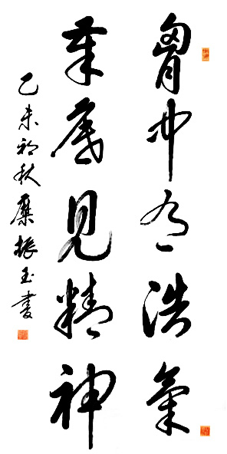 胷中有浩氣
筆底見精神
乙未初秋糜振玉書